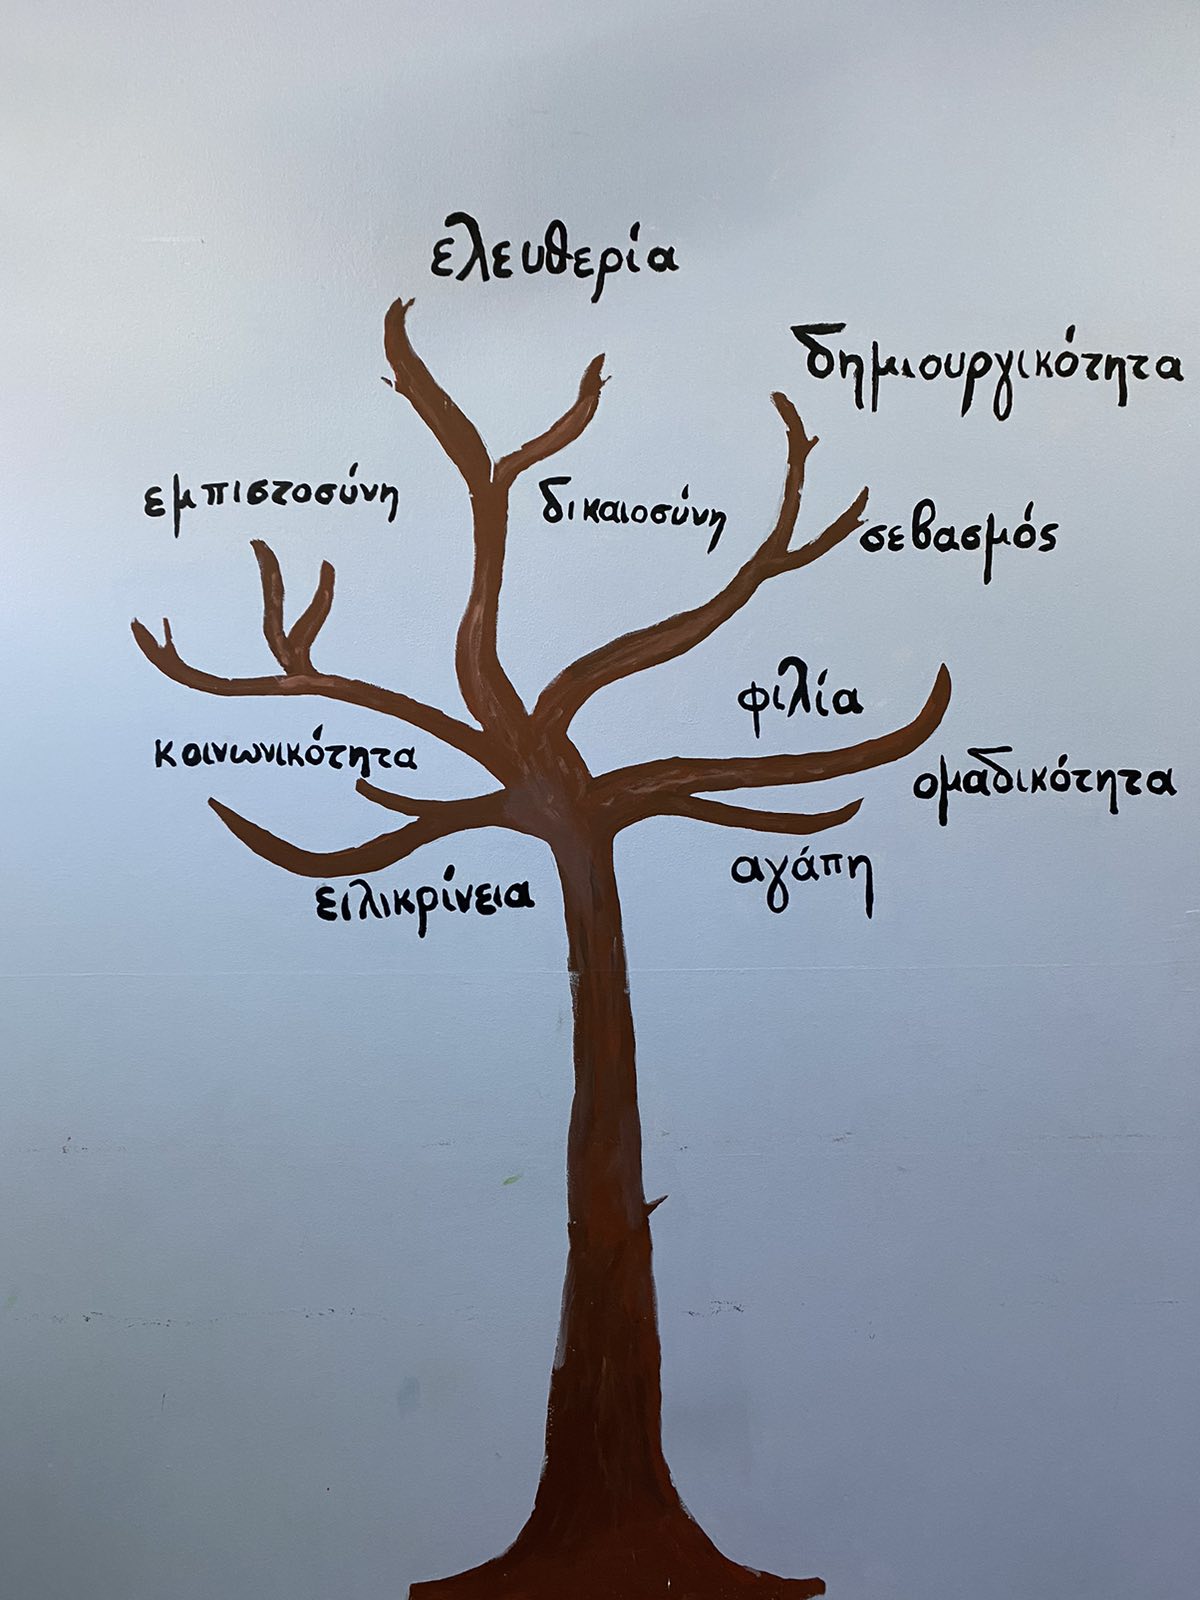 ελευθερία
δημιουργικότητα
εμπιστοσύνη
δικαιοσύνη
σεβασμός
φιλία
κοινωνικότητα
ομαδικότητα
αγάπη
ειλικρίνεια